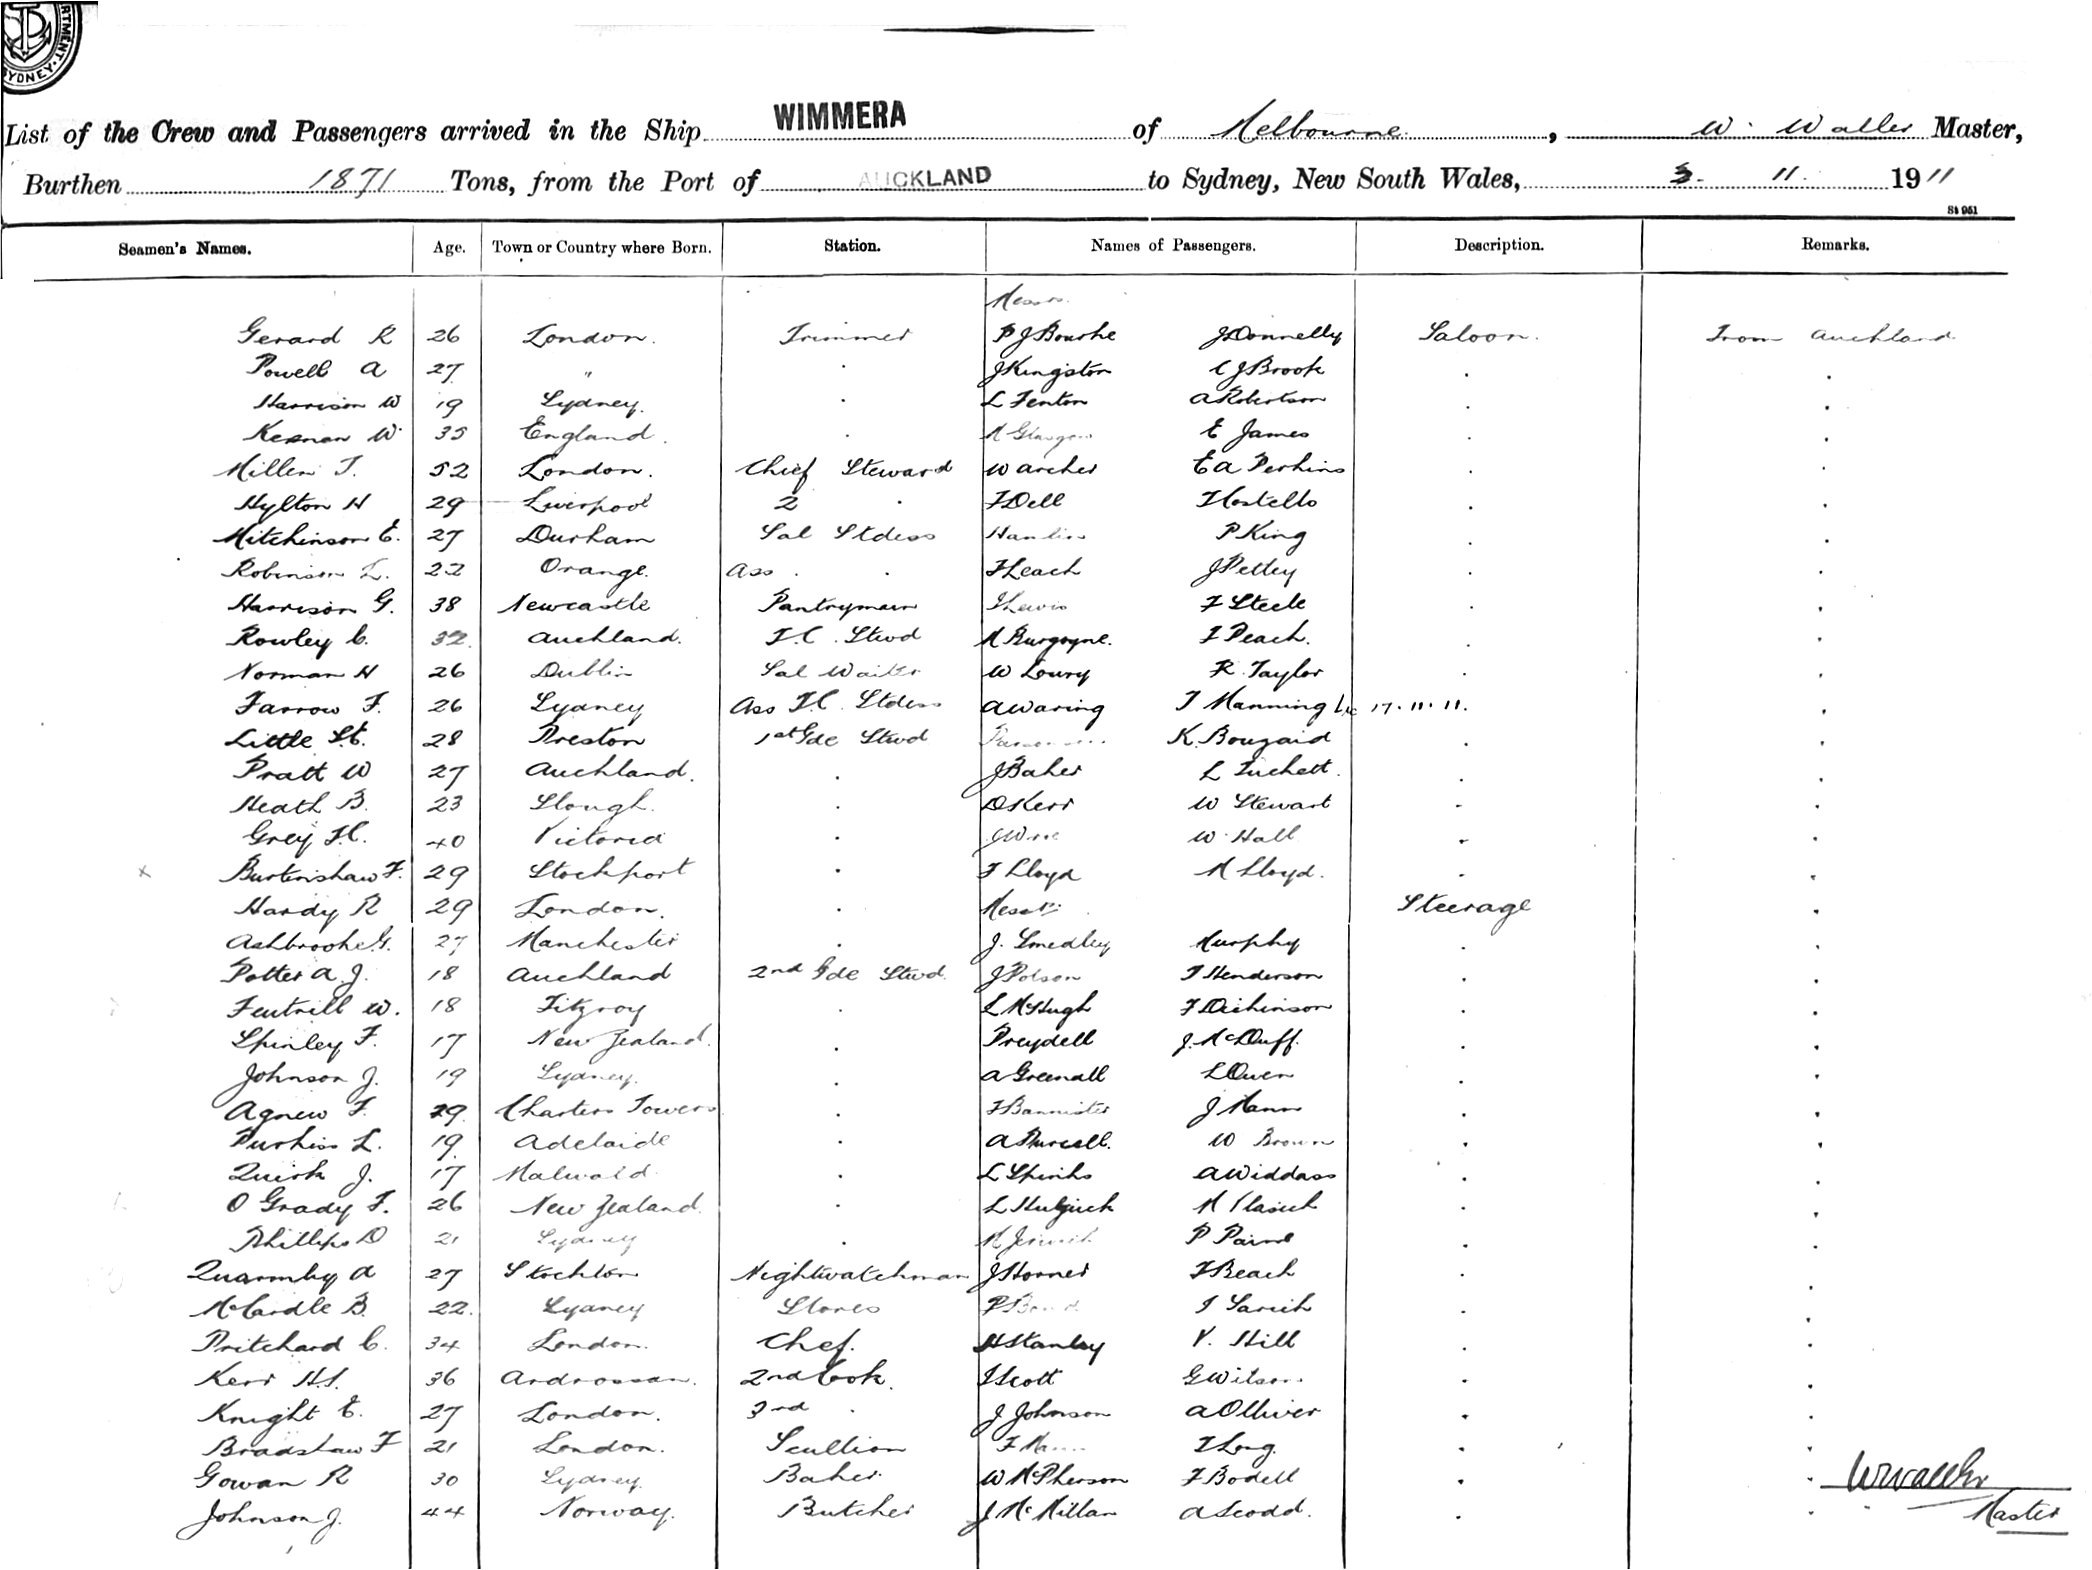 RTMENT. SYDNEY.
List of the Crew and Passengers arrived in the Ship WIMMERA of Melbourne, W. Waller Master,
Burthen 1871 Tons, from the Port of AUCKLAND to Sydney, New South Wales, 3. 11. 1911
St 961
Seamen's Names. Age. Town or Country where Born. Station. Names of Passengers. Description. Remarks.
Messrs.
Gerard R 26 London. Trimmer P J Bourke J Donnelly Saloon. From Auckland
Powell A 27 " . J Kingston C J Brook . .
Harrison W 19 Sydney. . L Fenton A Robertson . .
Keenan W 35 England. . M E James . .
Millen T. 52 London. Chief Steward W Archer E A Perkins . .
Hylton H 29 Liverpool 2 . F Dell T Costello . .
Mitchinson E. 27 Durham Sal Stdess Hamlin P King . .
Robinson L. 22 Orange. Ass . . F Leach J Petley . .
Harrison G. 38 Newcastle Pantryman J Lewis F Steele . .
Rowley C. 32 Auckland. F.C. Stwd M Burgoyne. I Peach. . .
Norman H 26 Dublin Sal Waiter W Lowry R. Taylor . .
Farrow F. 26 Sydney Ass F.C. Stdess A Waring T Manning 17.11.11. .
Little St. 28 Preston 1st Gde Stwd K. Bouzaid . .
Pratt W 27 Auckland. . J Baker L Tuckett. . .
Heath B. 23 Slough. . D Kerr W Stewart . .
Grey F.C. 40 Victoria . W Hall . .
x Burtinshaw F. 29 Stockport . F Lloyd M Lloyd. . .
Hardy R 29 London. . Messrs Steerage .
Ashbrooke G. 27 Manchester . J. Smedley Murphy . .
Potter A.J. 18 Auckland 2nd Gde Stwd. J Polson T Henderson . .
Feutrill W. 18 Fitzroy . L McHugh F Dickinson . .
Spinley F. 17 New Zealand. . Preydell J. McDuff. . .
Johnson J. 19 Sydney. . A Greenall L Owen . .
Agnew F. 29 Charters Towers . F Bannister J Mann . .
Purkiss L. 19 Adelaide . A Purcell. W Brown . .
Quirk J. 17 . L Spinks A Widdass . .
O Grady F. 26 New Zealand. . L M . .
Phillips D 21 Sydney . M P Paine . .
Quarmby A 27 Stockton Nightwatchman J Horner F Beach . .
McCardle B. 22. Sydney Stores P Bond I Sarich . .
Pritchard C. 34 London. Chef. H Stanley V. Hill . .
Kerr H.S. 36 Ardrossan. 2nd Cook. J Scott G Wilson . .
Knight E. 27 London. 3rd . J Johnson A Olliver . .
Bradshaw F 21 London. Scullion F Mann T Long. . .
Gowan R 30 Sydney. Baker W McPherson F Bodell . . W Waller
Johnson J. 44 Norway. Butcher J McMillan A Scodd. . . Master